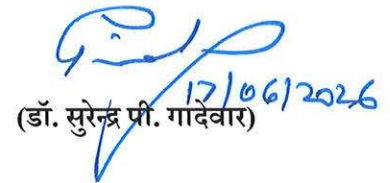 17/06/2026
(डॉ. सुरेन्द्र पी. गादेवार)